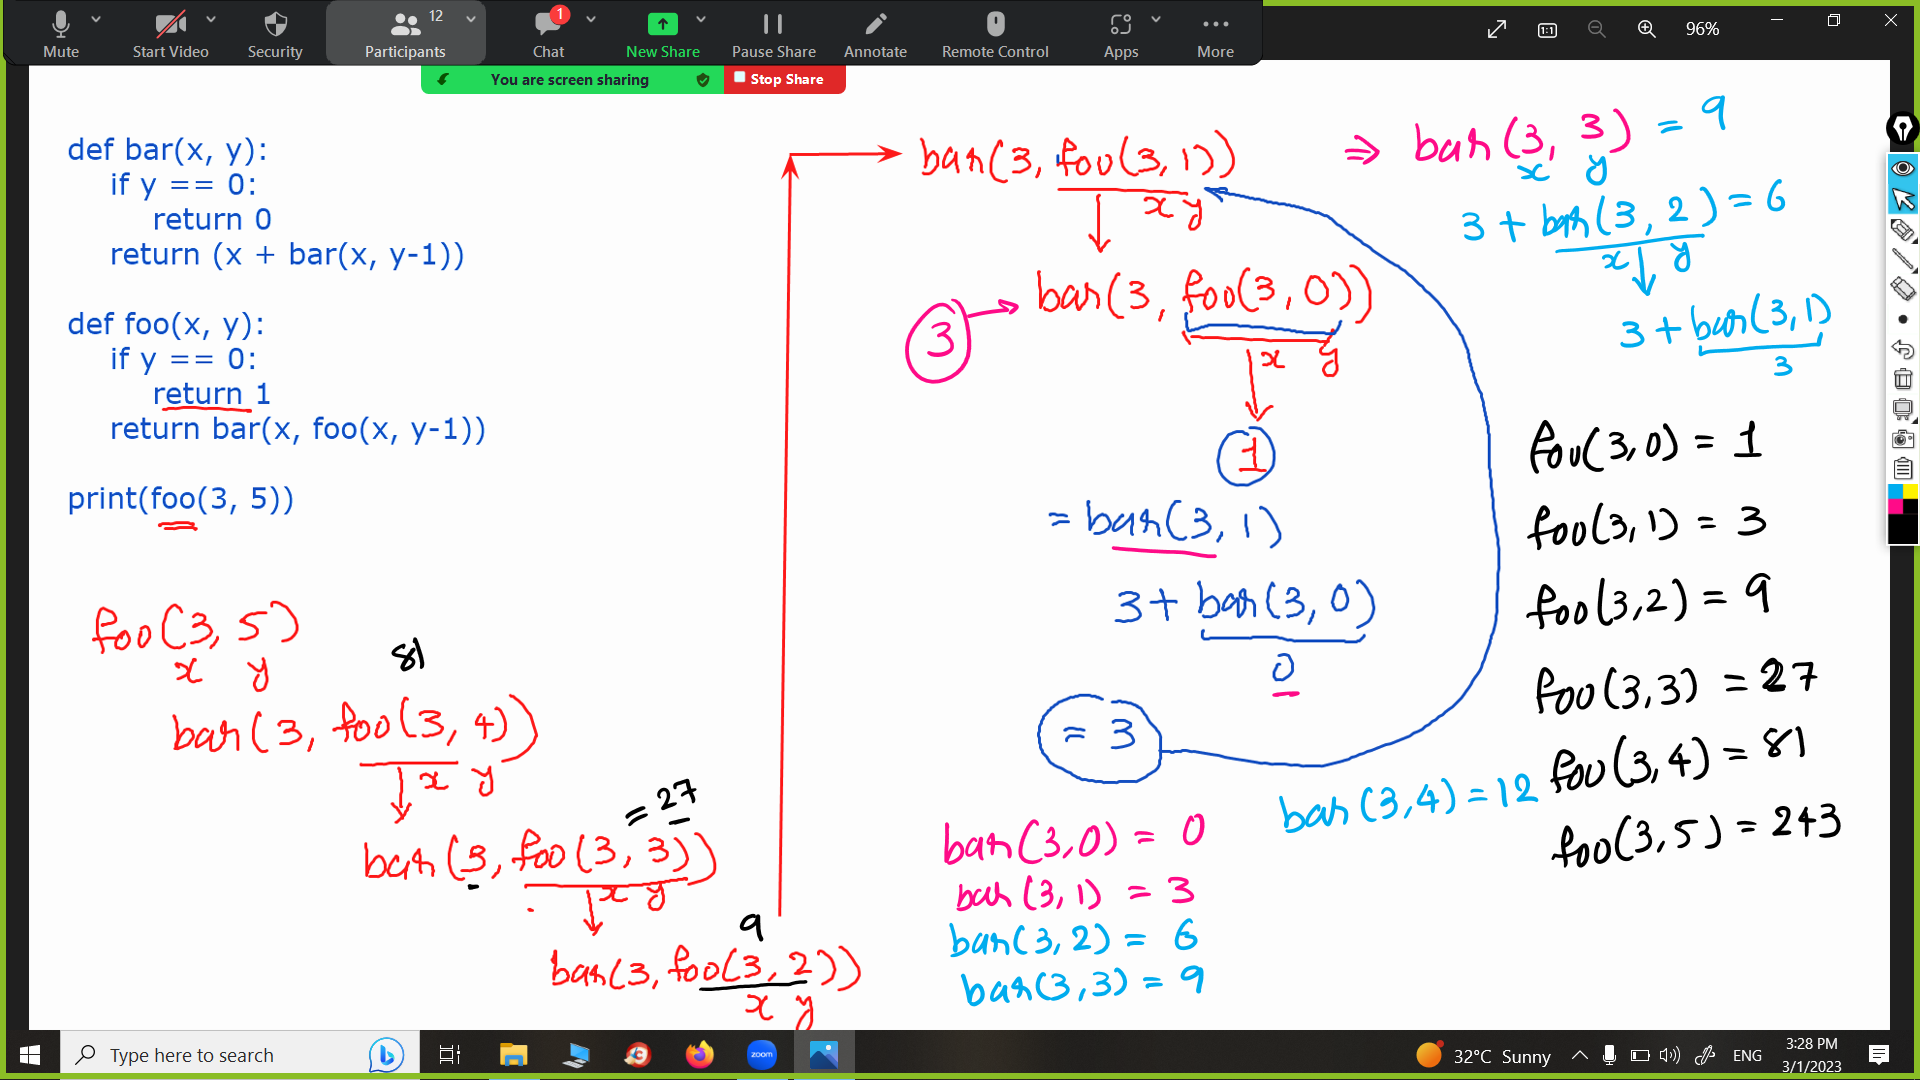 Mute
Start Video
Security
Participants
12
Chat
1
New Share
Pause Share
Annotate
Remote Control
Apps
More
96%
You are screen sharing
Stop Share
def bar(x, y):
if y == 0:
return 0
return (x + bar(x, y-1))
def foo(x, y):
if y == 0:
return 1
return bar(x, foo(x, y-1))
print(foo(3, 5))
foo(3, 5)
x y
81
bar(3, foo(3, 4))
x y
= 27
bar(3, foo(3, 3))
x y
9
bar(3, foo(3, 2))
x y
bar(3, foo(3, 1))
x y
3
bar(3, foo(3, 0))
x y
1
= bar(3, 1)
3 + bar(3, 0)
0
= 3
⇒ bar(3, 3) = 9
x y
3 + bar(3, 2) = 6
x y
3 + bar(3, 1)
3
bar(3,0) = 0
bar(3,1) = 3
bar(3,2) = 6
bar(3,3) = 9
bar(3,4) = 12
foo(3,0) = 1
foo(3,1) = 3
foo(3,2) = 9
foo(3,3) = 27
foo(3,4) = 81
foo(3,5) = 243
Type here to search
zoom
32°C Sunny
ENG
3:28 PM
3/1/2023